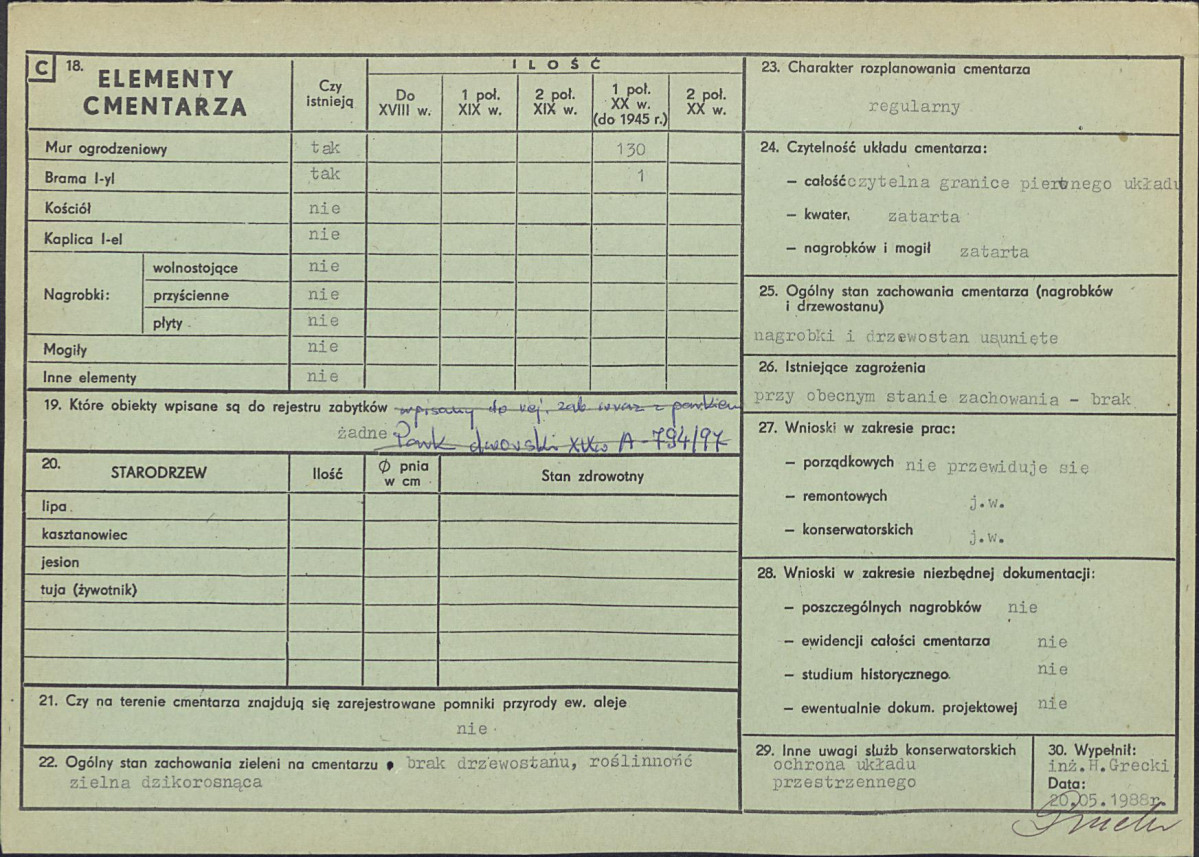 C 18. ELEMENTY CMENTARZA
Czy istnieją
ILOŚĆ
Do XVIII w.
1 poł. XIX w.
2 poł. XIX w.
1 poł. XX w. (do 1945 r.)
2 poł. XX w.
Mur ogrodzeniowy tak 130
Brama I-yl tak 1
Kościół nie
Kaplica I-el nie
Nagrobki: wolnostojące nie
przyścienne nie
płyty nie
Mogiły nie
Inne elementy nie
19. Które obiekty wpisane są do rejestru zabytków wpisany do rej. zab wraz z parkiem
żadne Park dworski XIXw A-794/97
20. STARODRZEW
Ilość
Ø pnia w cm
Stan zdrowotny
lipa
kasztanowiec
jesion
tuja (żywotnik)
21. Czy na terenie cmentarza znajdują się zarejestrowane pomniki przyrody ew. aleje
nie
22. Ogólny stan zachowania zieleni na cmentarzu brak drzewostanu, roślinność
zielna dzikorosnąca
23. Charakter rozplanowania cmentarza
regularny
24. Czytelność układu cmentarza:
– całość czytelna granice pierwnego układu
– kwater, zatarta
– nagrobków i mogił zatarta
25. Ogólny stan zachowania cmentarza (nagrobków
i drzewostanu)
nagrobki i drzewostan usunięte
26. Istniejące zagrożenia
przy obecnym stanie zachowania - brak
27. Wnioski w zakresie prac:
– porządkowych nie przewiduje się
– remontowych j.w.
– konserwatorskich j.w.
28. Wnioski w zakresie niezbędnej dokumentacji:
– poszczególnych nagrobków nie
– ewidencji całości cmentarza nie
– studium historycznego. nie
– ewentualnie dokum. projektowej nie
29. Inne uwagi służb konserwatorskich
ochrona układu
przestrzennego
30. Wypełnił:
inż.H.Grecki
Data:
20.05.1988r.